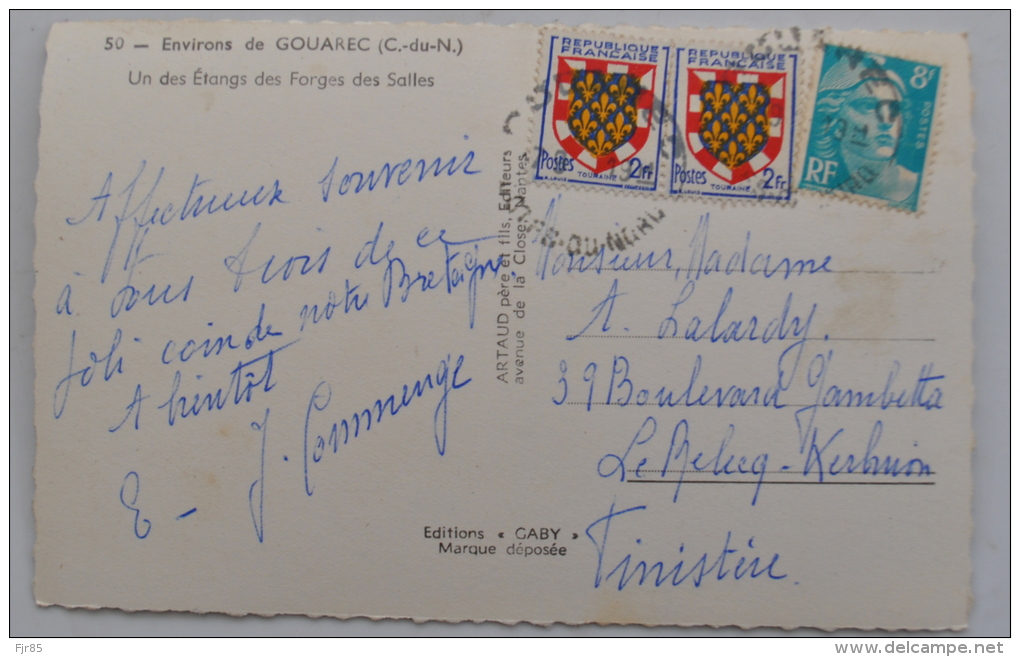 50 — Environs de GOUAREC (C.-du-N.)
Un des Étangs des Forges des Salles
Affectueux Souvenir
à tous trois de ce
joli coin de notre Bretagne.
A bientôt
E - J. Commenge
ARTAUD père et fils, Editeurs
avenue de la Close, Nantes
Editions « GABY »
Marque déposée
REPUBLIQUE
FRANÇAISE
Postes 2Fr
TOURAINE
REPUBLIQUE
FRANÇAISE
Postes 2Fr
TOURAINE
8f
POSTES
RF
-DU-NORD
Monsieur, Madame
A. Lalardy.
39 Boulevard Gambetta
Le Relecq-Kerhuon
Finistère.
Fjr85
delcampe.net